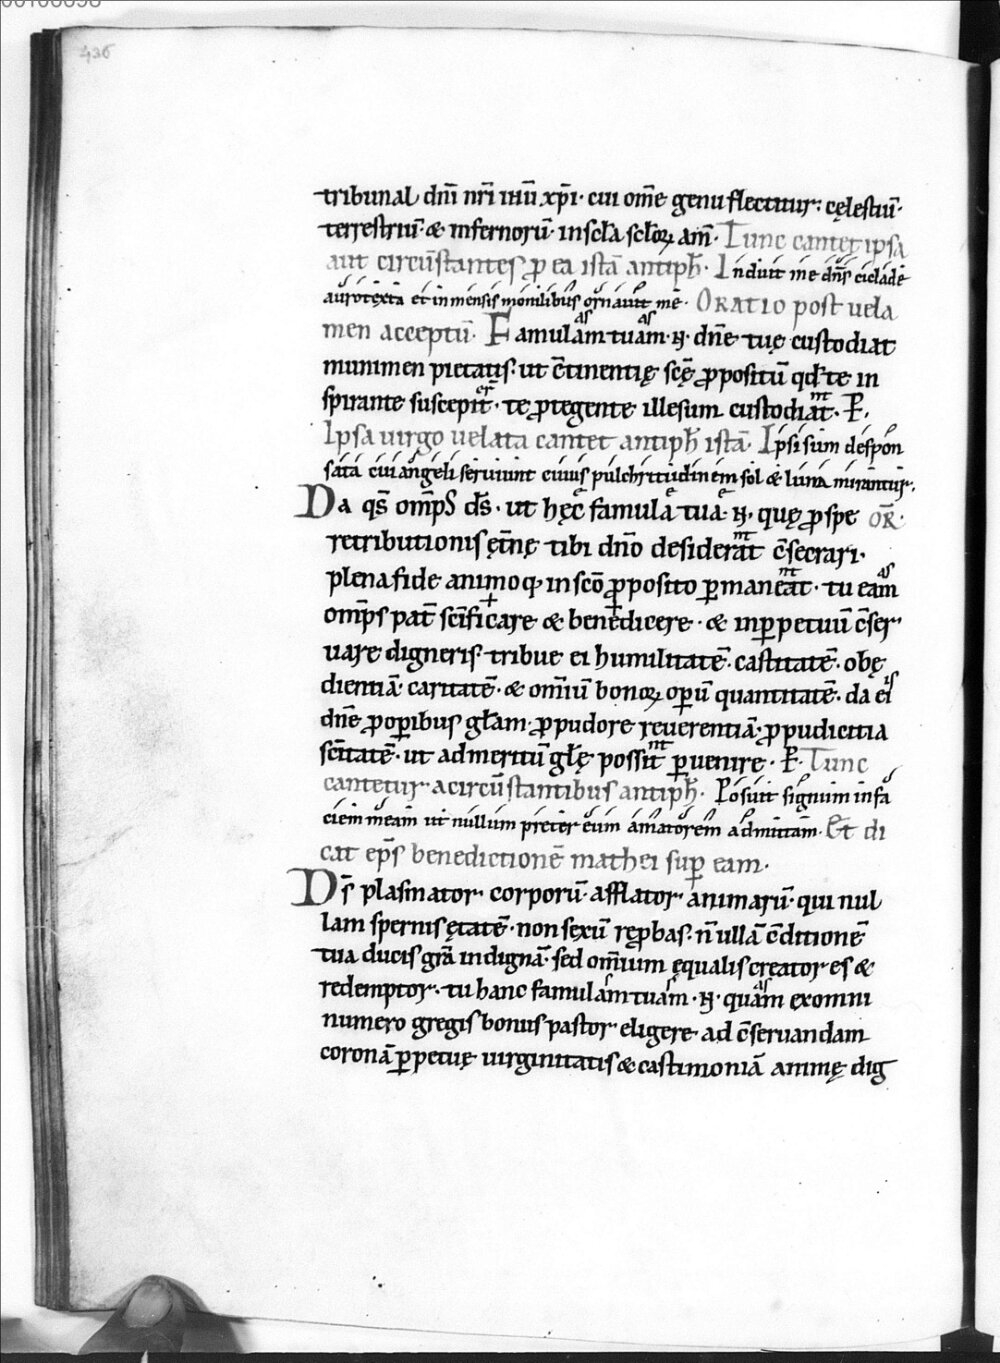 436
tribunal dn̄i nr̄i ihū xp̄i· cui om̄e genu flectitur· cęlestiū·
terrestriū· & infernorū· in sc̄la sc̄loꝝ am̄· Tunc cantet ipsa
aut circūstantes ꝓ ea istā antiph̄· Induit me dn̄s ciclade
auro texta et inmensis monilibus ornauit me· ORATIO post uela
men acceptū· Famulam tuam as as ·N· dn̄e tuę custodiat
munimen pietatis· ut c̄tinentię sc̄ę ꝓpositū qd̄ te in
spirante suscepit er̄· te ꝓtegente illesum custodiat nt· P̄·
Ipsa uirgo uelata cantet antiph̄ istā· Ipsi sum despon
sata cui angeli seruiunt cuius pulchritudinem sol & luna mirantur·
Da qs̄ omp̄s ds̄· ut hęc famula tua ę ę ·N· quę ꝓ spe OR̄·
retributionis ęt̄nę tibi dn̄o desiderat nt c̄secrari·
plena fide animoq; in sc̄o ꝓposito ꝑmaneat nt· tu eam as
omp̄s pat̄ sc̄ificare + & benedicere +· & in ꝑpetuū c̄ser
uare digneris· tribue ei humilitatē· castitatē· obę
dientiā caritatē· & om̄iū bonoꝝ oꝑū quantitatē· da ei is
dn̄e ꝓ oꝑibus gl̄am· ꝓ pudore reuerentiā· ꝓ pudicitia
sc̄itatē· ut ad meritū gl̄ę possit nt ꝑuenire· P̄· Tunc
cantetur a circūstantibus antiph̄· Posuit signum in fa
ciem meam ut nullum preter eum amatorem admittam· Et di
cat ep̄s benedictionē mathei suꝑ eam·
Ds̄ plasmator corporū· afflator animarū· qui nul
lam spernis ętatē· non sexū reꝓbas· n̄ ullā c̄ditionē
tua ducis gr̄a indignā· sed om̄ium ęqualis creator es &
redemptor· tu hanc famulam tuam ·N· quam ex omni
numero gregis bonus pastor eligere ad c̄seruandam
coronā ꝑpetuę uirginitatis & castimoniā animę dig